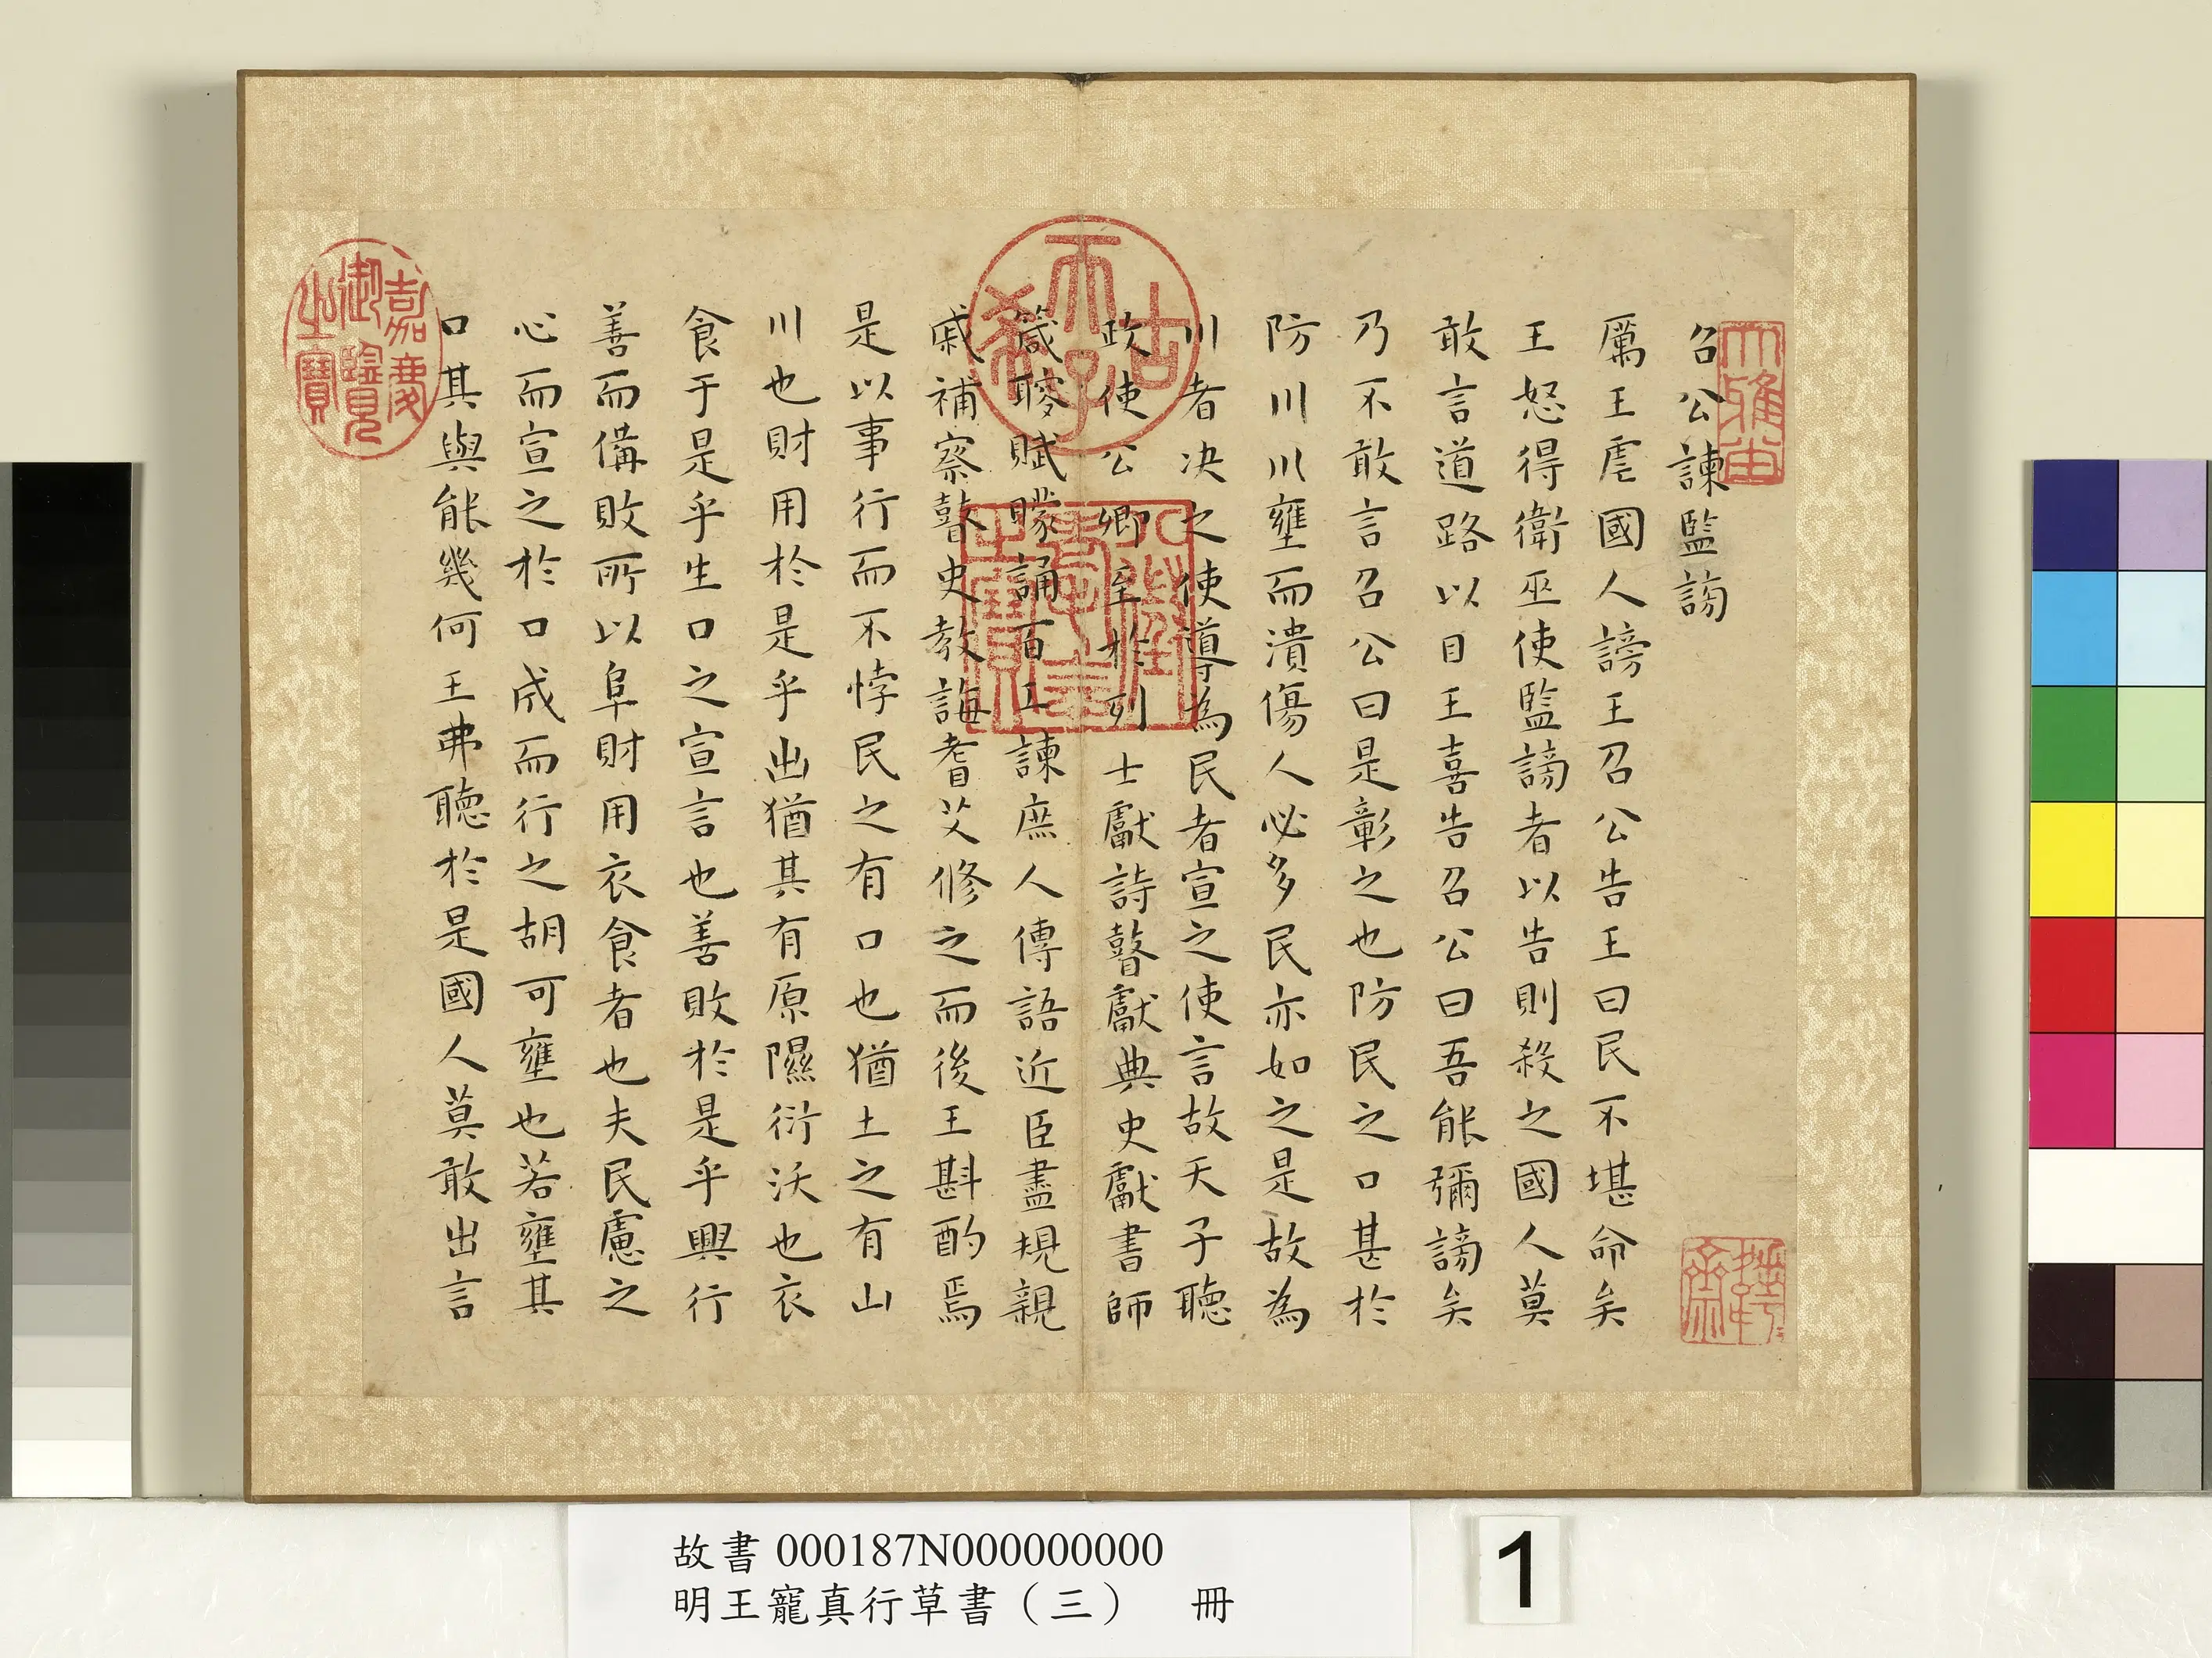 召公諫監謗
厲王虐國人謗王召公告王曰民不堪命矣
王怒得衛巫使監謗者以告則殺之國人莫
敢言道路以目王喜告召公曰吾能彌謗矣
乃不敢言召公曰是彰之也防民之口甚於
防川川壅而潰傷人必多民亦如之是故為
川者决之使導為民者宣之使言故天子聽
政使公卿至於列士獻詩瞽獻典史獻書師
箴瞍賦矇誦百工諫庶人傳語近臣盡規親
戚補察瞽史教誨耆艾修之而後王斟酌焉
是以事行而不悖民之有口也猶土之有山
川也財用於是乎出猶其有原隰衍沃也衣
食于是乎生口之宣言也善敗於是乎興行
善而備敗所以阜財用衣食者也夫民慮之
心而宣之於口成而行之胡可壅也若壅其
口其與能幾何王弗聽於是國人莫敢出言
古希天子
八徵耄念之寶
嘉慶御覽之寶
故書 000187N000000000
明王寵真行草書（三） 冊
1